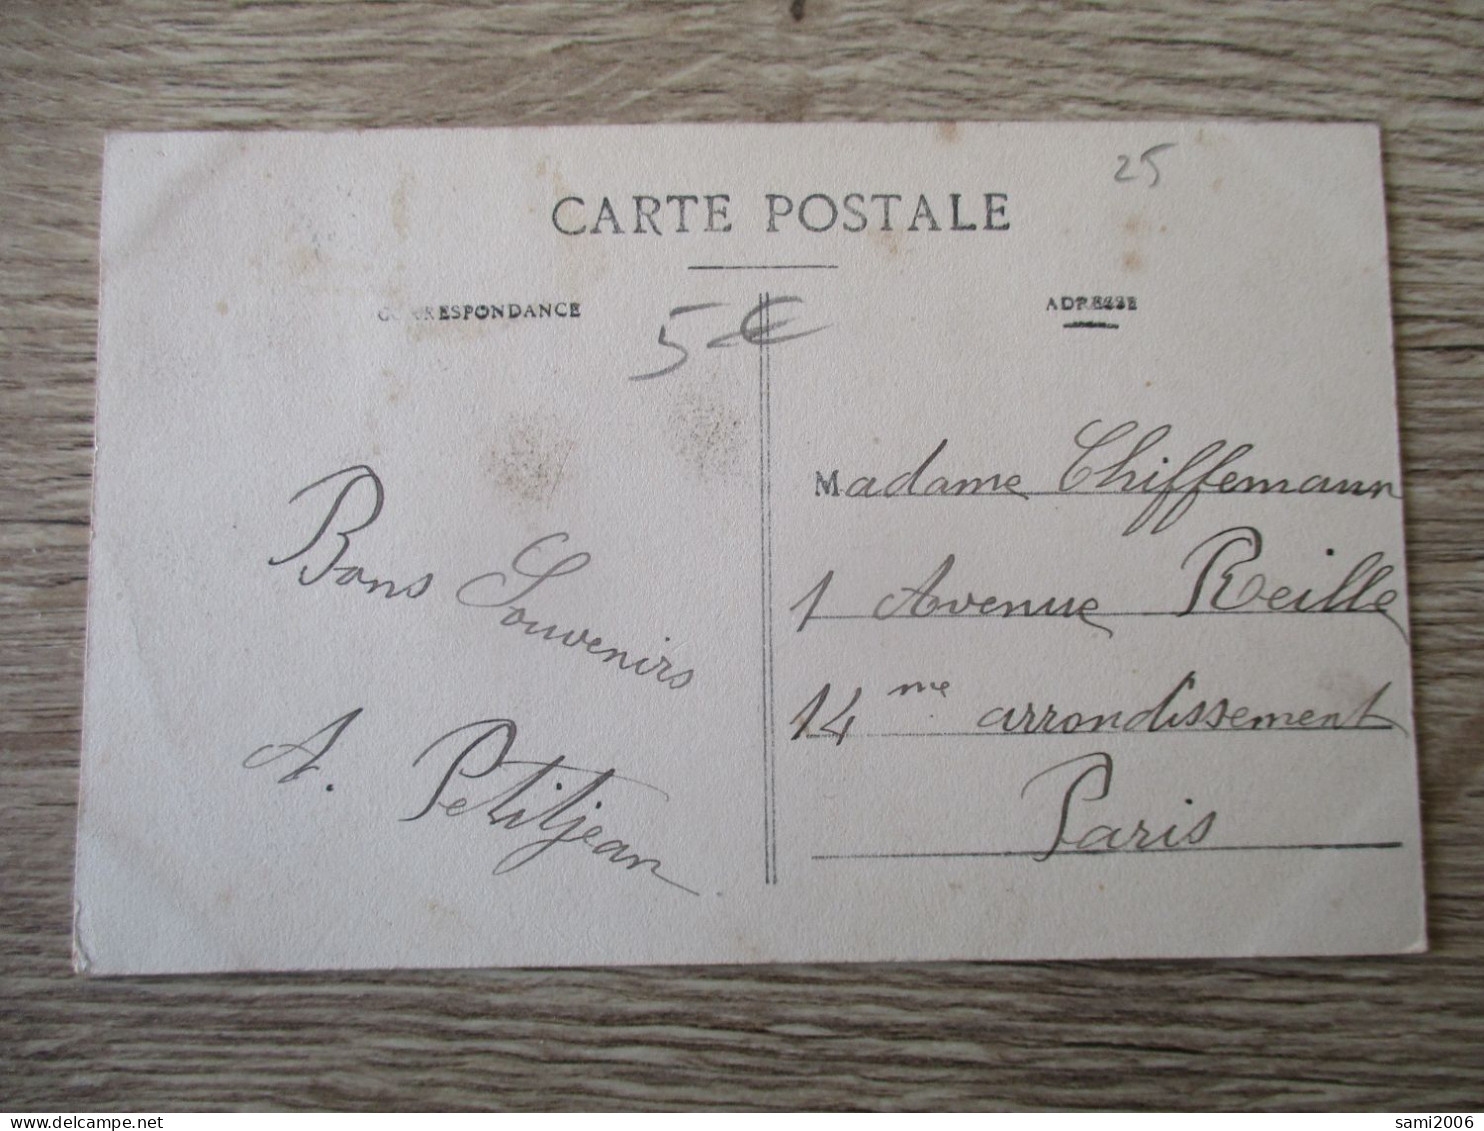 25
CARTE POSTALE
CORRESPONDANCE
ADRESSE
5€
Bons Souvenirs
A. Petitjean
Madame Chiffemann
1 Avenue Reille
14me arrondissement
Paris
delcampe.net
sami2006